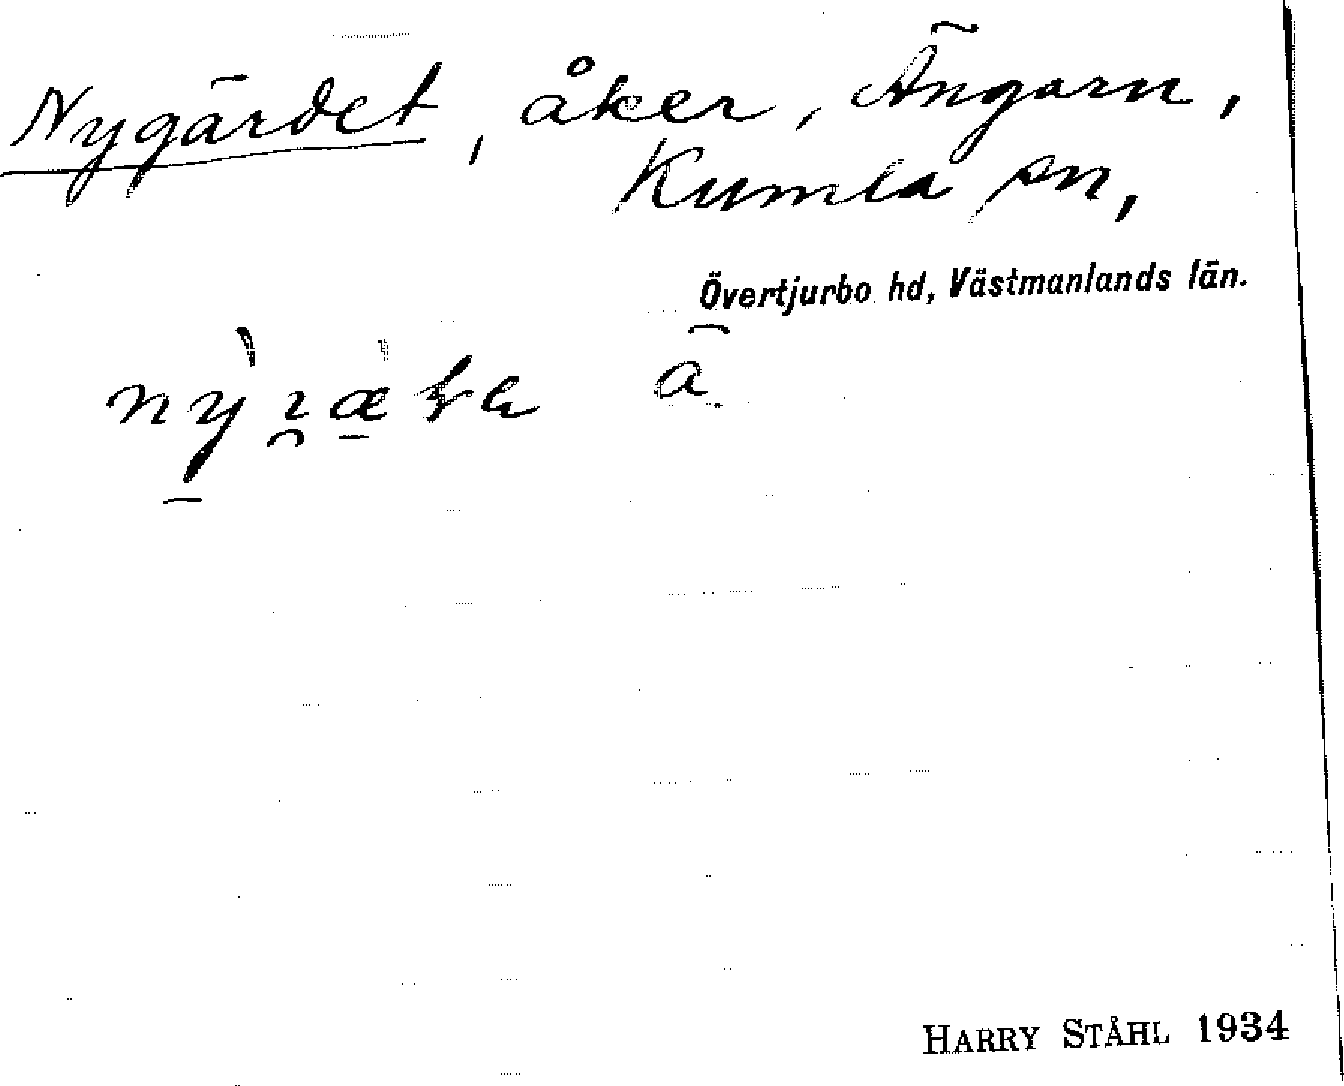 Nygärdet, åker, Ängarn,
Kumla sn,
Övertjurbo hd, Västmanlands län.
HARRY STÅHL 1934